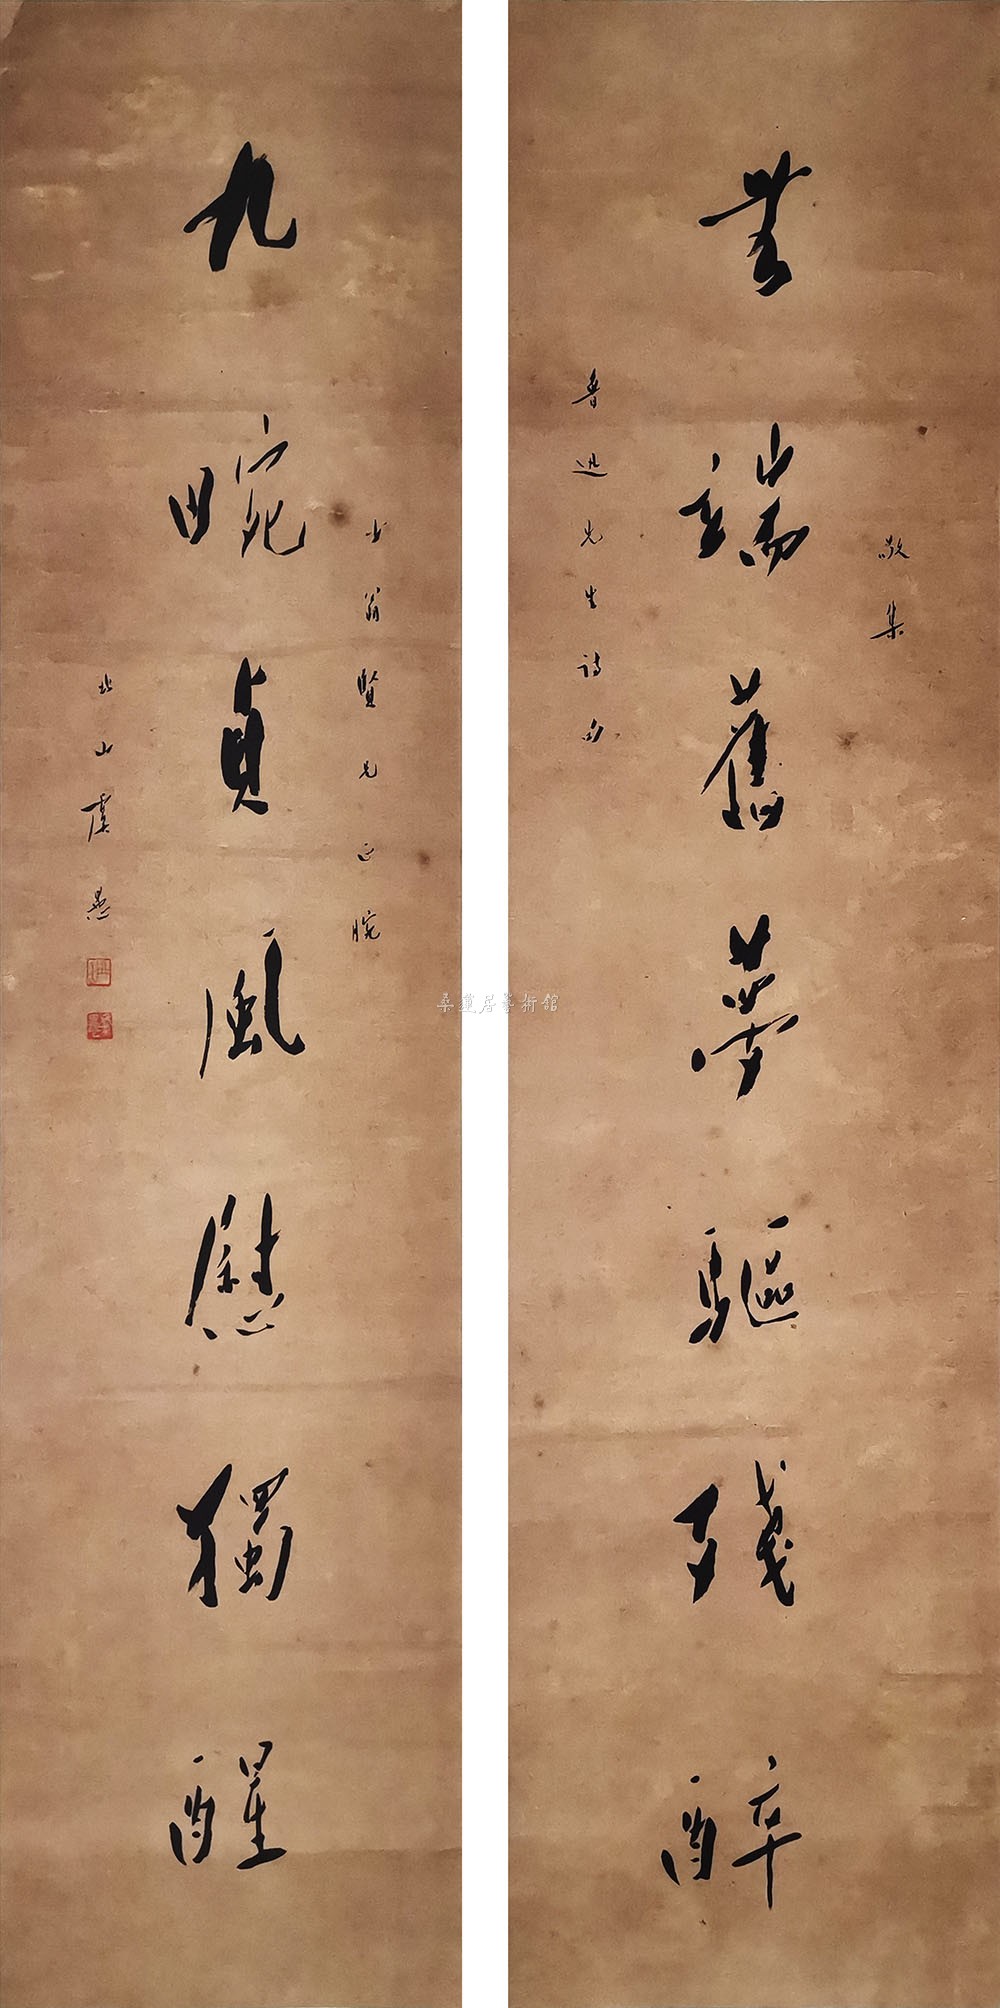 敬集
無端舊夢驅殘醉
魯迅先生詩句
翁賢兄正腕
九畹貞風慰獨醒
北山虞愚
桑蓮居藝術館